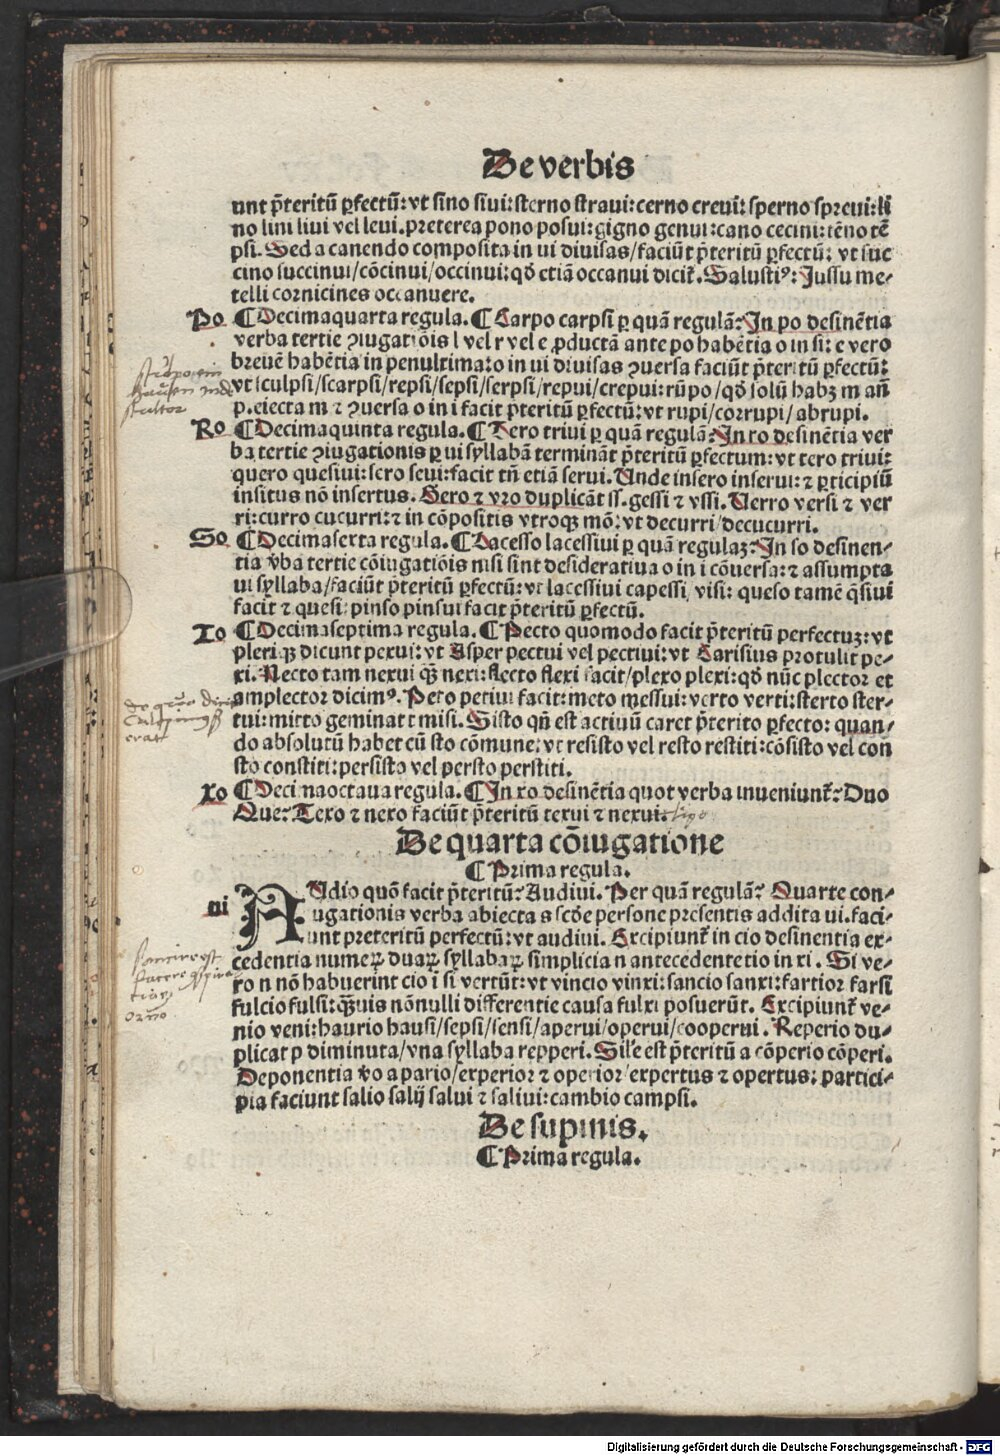 De verbis
unt p̄teritū ꝑfectū: vt sino siui: sterno straui: cerno creui: sperno spreui: li
no lini liui vel leui. preterea pono posui: gigno genui: cano cecini: tēno tē
psi. Sed a canendo composita in ui diuisas/faciūt p̄teritū ꝑfectū: vt suc
cino succinui/cōcinui/occinui: qd̄ etiā occanui dicit̄. Salustiꝰ: Jussu me⸗
telli cornicines occanuere.
Po ¶ Decimaquarta regula. ¶ Carpo carpsi ꝑ quā regulā: In po desinētia
verba tertie ꝯiugatiōis l vel r vel e ꝓductā ante po habētia o in si: e vero
breuē habētia in penultima: o in ui diuisas ꝯuersa faciūt p̄teritū ꝑfectū:
vt sculpsi/scarpsi/repsi/sepsi/serpsi/repui/crepui: rūpo/qd̄ solū habꝫ m añ
p. eiecta m ⁊ ꝯuersa o in i facit p̄teritū ꝑfectū: vt rupi/corrupi/abrupi.
Ro ¶ Decimaquinta regula. ¶ Tero triui ꝑ quā regulā: In ro desinētia ver
ba tertie ꝯiugationis ꝑ ui syllabā termināt p̄teritū ꝑfectum: vt tero triui:
quero quesiui: sero seui: facit tñ etiā serui. Unde insero inserui: ⁊ ꝑticipiū
insitus nō insertus. Gero ⁊ vro duplicāt ss. gessi ⁊ vssi. Verro versi ⁊ ver
ri: curro cucurri: ⁊ in cōpositis vtroqꝫ mō: vt decurri/decucurri.
So ¶ Decimasexta regula. ¶ Lacesso lacessiui ꝑ quā regulaꝫ: In so desinen⸗
tia v̄ba tertie cōiugatiōis nisi sint desideratiua o in i cōuersa: ⁊ assumpta
ui syllaba/faciūt p̄teritū ꝑfectū: vt lacessiui capessi/visi: queso tamē q̄siui
facit ⁊ quesi: pinso pinsui facit p̄teritū ꝑfectū.
To ¶ Decimaseptima regula. ¶ Pecto quomodo facit p̄teritū perfectuꝫ: vt
pleriqꝫ dicunt pexui: vt Asper pectui vel pectiui: vt Carisius protulit pe⸗
xi. Necto tam nexui q̄ꝫ nexi: flecto flexi facit/plexo plexi: qd̄ nūc plector et
amplector dicimꝰ. Peto petiui facit: meto messui: verto verti: sterto ster⸗
tui: mitto geminat t misi. Sisto qñ est actiuū caret p̄terito ꝑfecto: quan⸗
do absolutū habet cū sto cōmune: vt resisto vel resto restiti: cōsisto vel con
sto constiti: persisto vel persto perstiti.
Xo ¶ Decimaoctaua regula. ¶ In xo desinētia quot verba inueniunt̄: Duo
Que: Texo ⁊ nexo faciūt p̄teritū texui ⁊ nexui:
De quarta cōiugatione
¶ Prima regula.
ui AUdio quō facit p̄teritū: Audiui. Per quā regulā: Quarte con⸗
iugationis verba abiecta s scd̄e persone presentis addita ui. faci⸗
unt preteritū perfectū: vt audiui. Excipiunt̄ in cio desinentia ex⸗
cedentia numeꝝ duaꝝ syllabaꝝ simplicia n antecedente tio in xi. Si ve⸗
ro n nō habuerint cio i si vertūt: vt vincio vinxi: sancio sanxi: fartior farsi
fulcio fulsi: q̄ꝫuis nōnulli differentie causa fulxi posuerūt. Excipiunt̄ ve⸗
nio veni: haurio hausi/sepsi/sensi/aperui/operui/cooperui. Reperio du⸗
plicat p diminuta/vna syllaba repperi. Sil̄e est p̄teritū a cōperio cōperi.
Deponentia v̄o a pario/experior ⁊ operior/expertus ⁊ opertus: partici⸗
pia faciunt salio salij salui ⁊ saliui: cambio campsi.
De supinis.
¶ Prima regula.
Digitalisierung gefördert durch die Deutsche Forschungsgemeinschaft - DFG